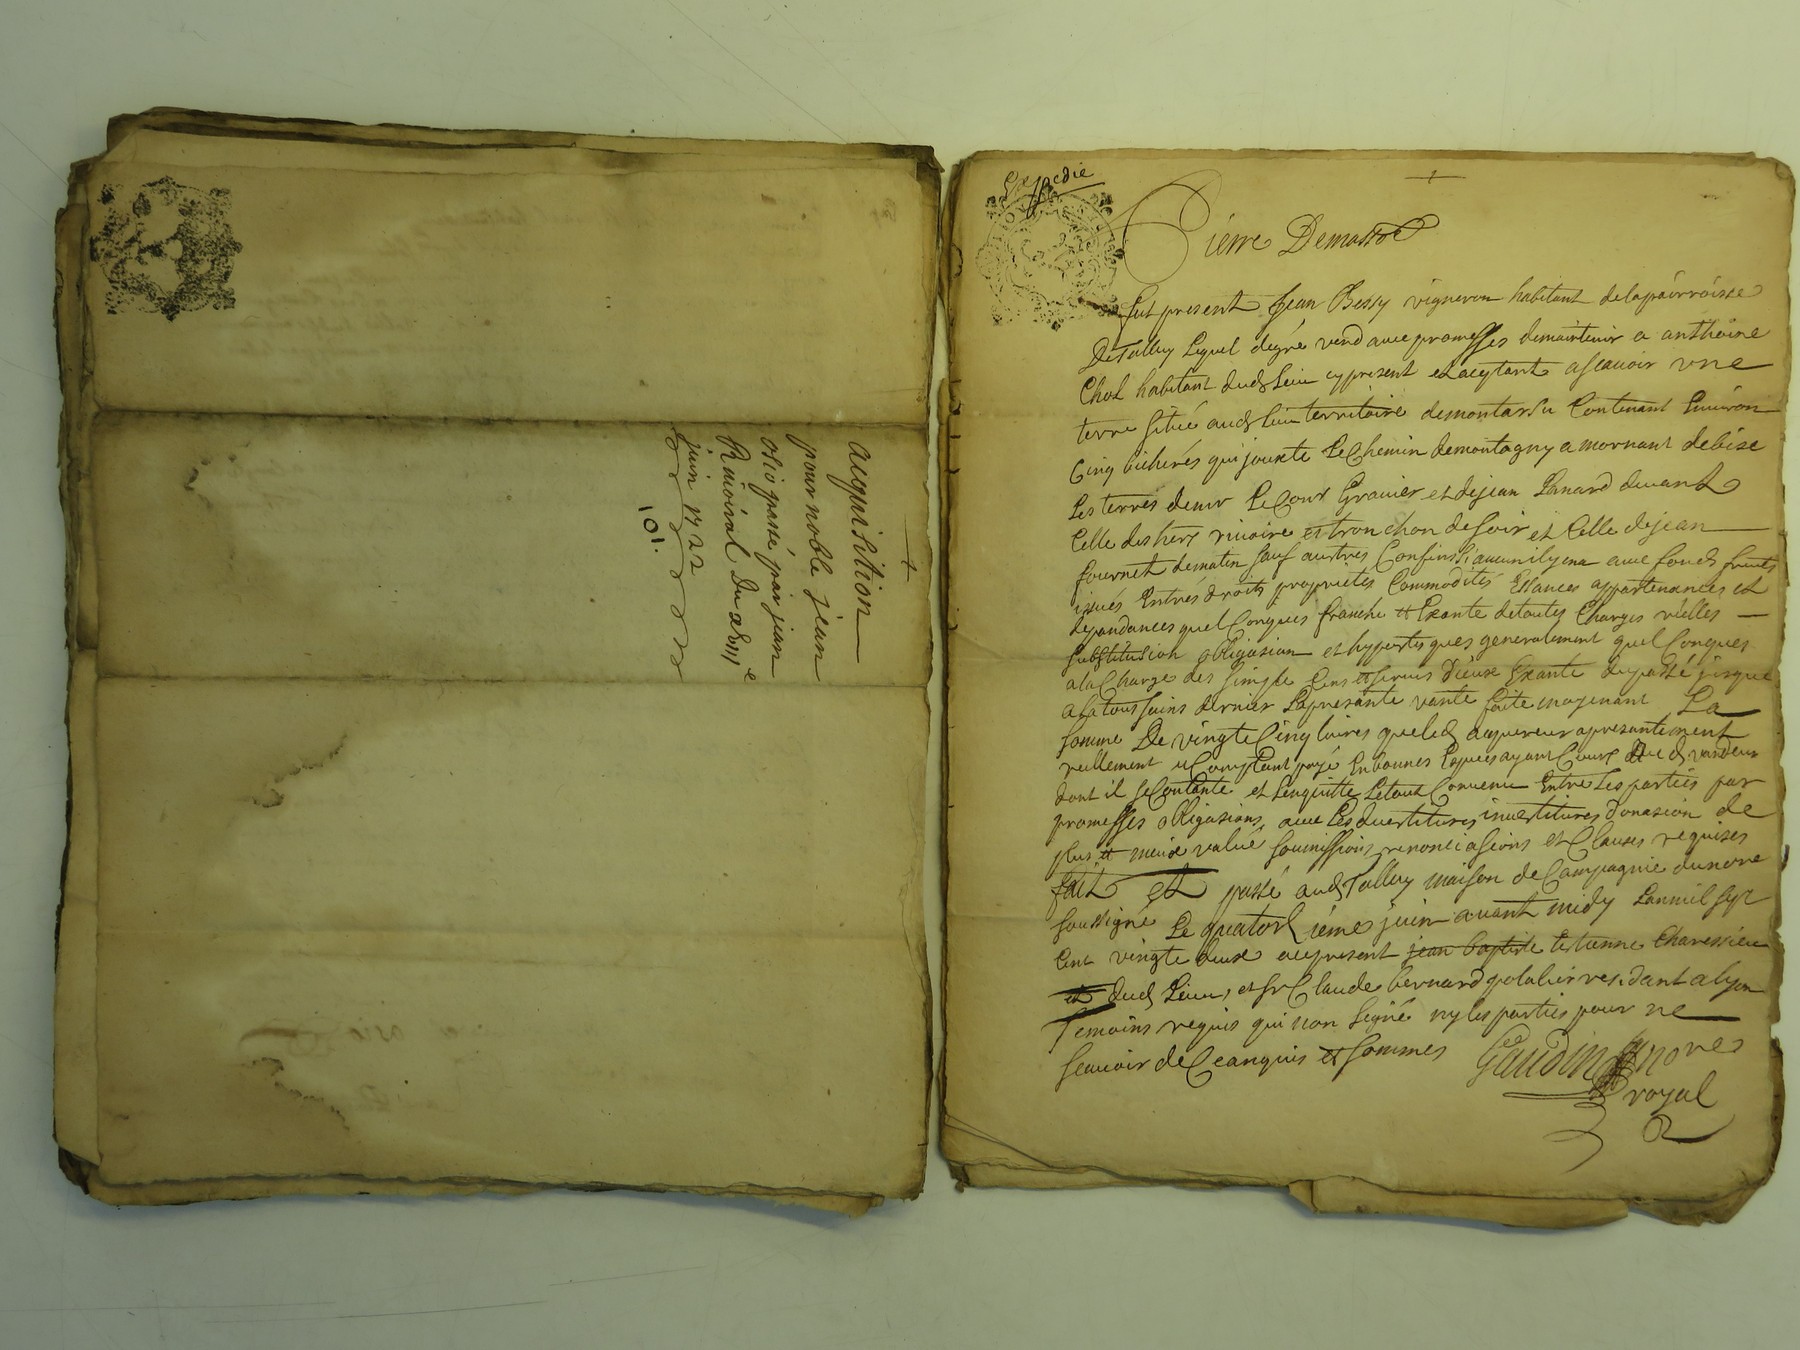 +
acquisition
pour noble jean
osio passé par jean
Rivoiral Du 23me
juin 1722
101.
Expedie
+
Pierre Demasso
fut present Jean Bessy vigneron habitant de la parroisse
De Talluy Lequel degré vend avec promesses demaintenir a anthoine
Chol habitant dud Lieu cy present et aceptant ascavoir vne
terre sitüé aud Lieu territoire demontarsu Contenant Environ
Cinq bicherés qui jouxte Le Chemin demontagny a mornant debise
Les terres de mr LeCour Gravier et dejean Lanard devant
Celle des hers rivoire et tronchon de soir et Celle dejean
fournet dematin sauf autres Confins avec fonds fruits
issués Entrés droits proprietés Commodités appartenances et
dependances quelConques franche et Exante detoutes Charges réelles
substitusion obligasion et hypoteques generalement quelConques
ala Charge des simple Cens et servis Dieux Exante dupassé jusque
alatoussains dernier La presante vante faite moyenant La
somme De vingt Cinq livres queled aquereur apresantement
reellement et Comptant payé Enbonnes Especes ayant Cours aud vandeur
dont il seContante et Lenquitte Letout Convenu Entre Les parties par
promesses obligasions avec Les devertitures invertitures donasion de
plus et meux valüe soumissions renonciasions et Clauses requises
fait et passé aud Talluy maison de Campagnie dunore
soussigné Le quatorziéme juin avant midy Lanmil sept
Cent vingt deux aupresent jean baptiste Estienne Charessieu
et dud Lieu, et sr Claude bernard residant a Lyon
Temoins requis qui non signé ny lesparties pour ne
scavoir de Ceanquis et sommes
Gaudin nore
royal